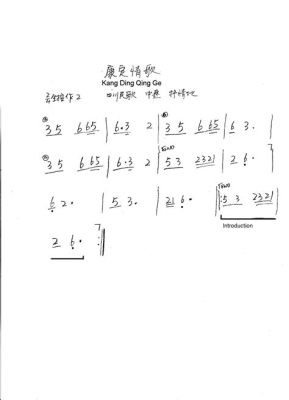 康定情歌
Kang Ding Qing Ge
四川民歌 中速 抒情地
3 5 6 6 5 | 6. 3 2 | 3 5 6 6 5 | 6 3.
3 5 6 6 5 | 6. 3 2 | 5 3 2 3 2 1 | 2 6.
6 2. | 5 3. | 2 1 6. | :5 3 2 3 2 1
Introduction
2 6. :||